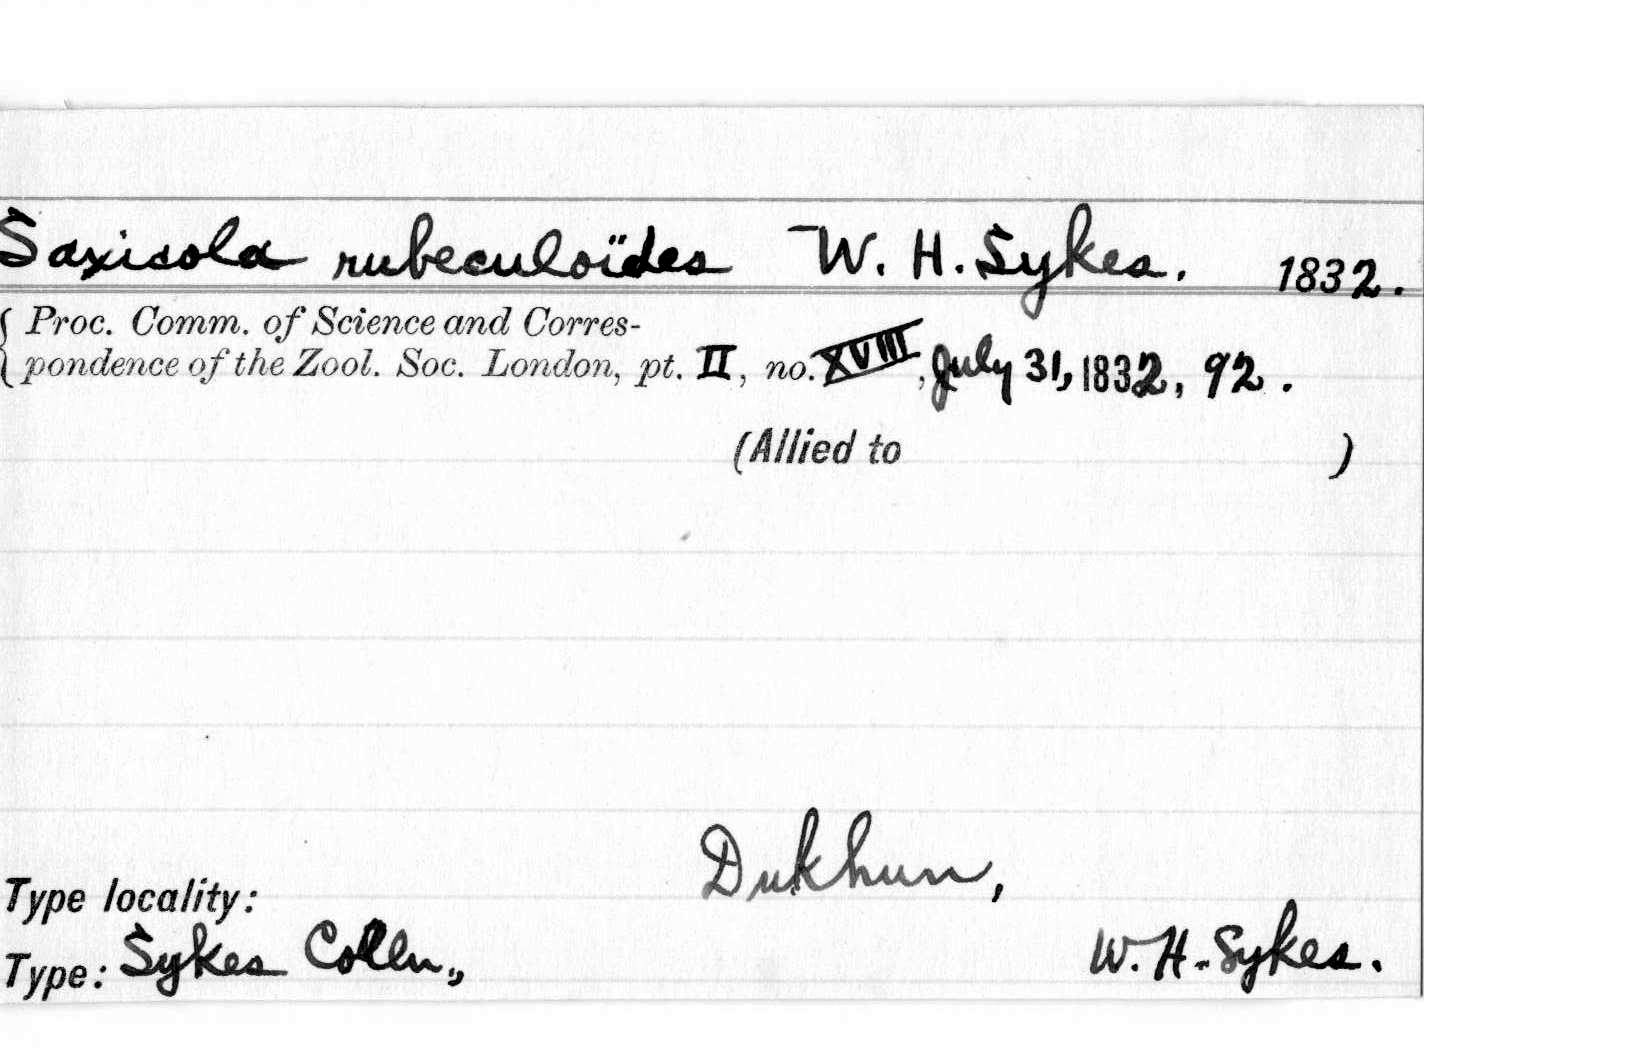 Saxicola rubeculoïdes W. H. Sykes. 1832.
Proc. Comm. of Science and Corres-
pondence of the Zool. Soc. London, pt. II, no. XVIII, July 31, 1832, 92.
(Allied to )
Dukhun,
Type locality:
Type: Sykes Colln., W. H. Sykes.